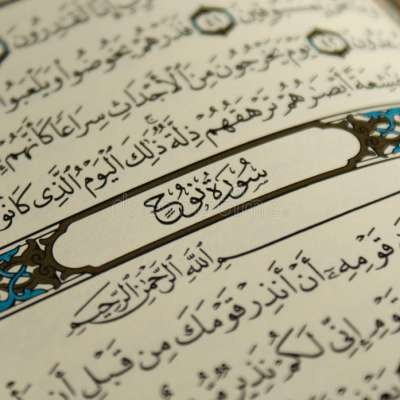 إِنَّا لَقَٰدِرُونَ
بِمَسْبُوقِينَ ٤١ فَذَرْهُمْ يَخُوضُوا۟ وَيَلْعَبُوا۟
٤٢ يَوْمَ يَخْرُجُونَ مِنَ ٱلْأَجْدَاثِ سِرَاعًا كَأَنَّهُمْ
خَٰشِعَةً أَبْصَٰرُهُمْ تَرْهَقُهُمْ ذِلَّةٌ ۚ ذَٰلِكَ ٱلْيَوْمُ ٱلَّذِى كَانُوا۟
سُورَةُ نُوحٍ
ٱللَّهِ ٱلرَّحْمَٰنِ ٱلرَّحِيمِ
قَوْمِهِۦٓ أَنْ أَنذِرْ قَوْمَكَ مِن قَبْلِ أَن
إِنِّى لَكُمْ نَذِيرٌ